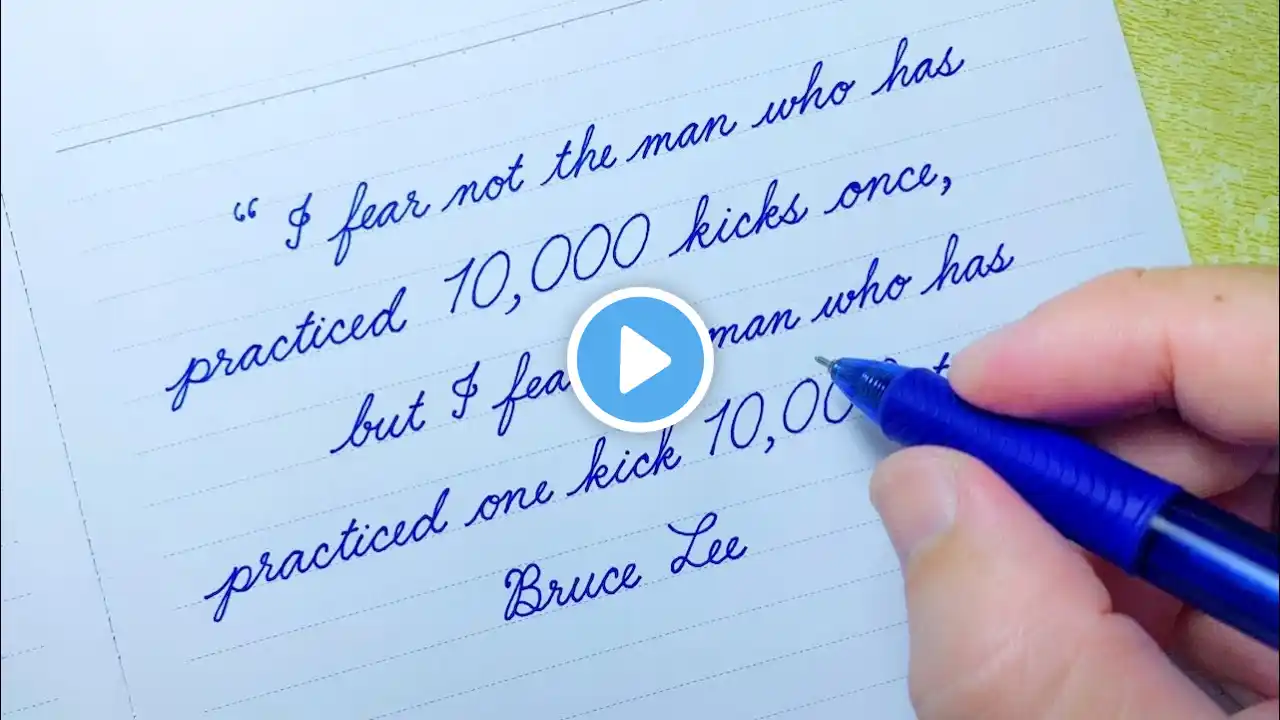 “ I fear not the man who has
practiced 10,000 kicks once,
but I fea man who has
practiced one kick 10,00
Bruce Lee